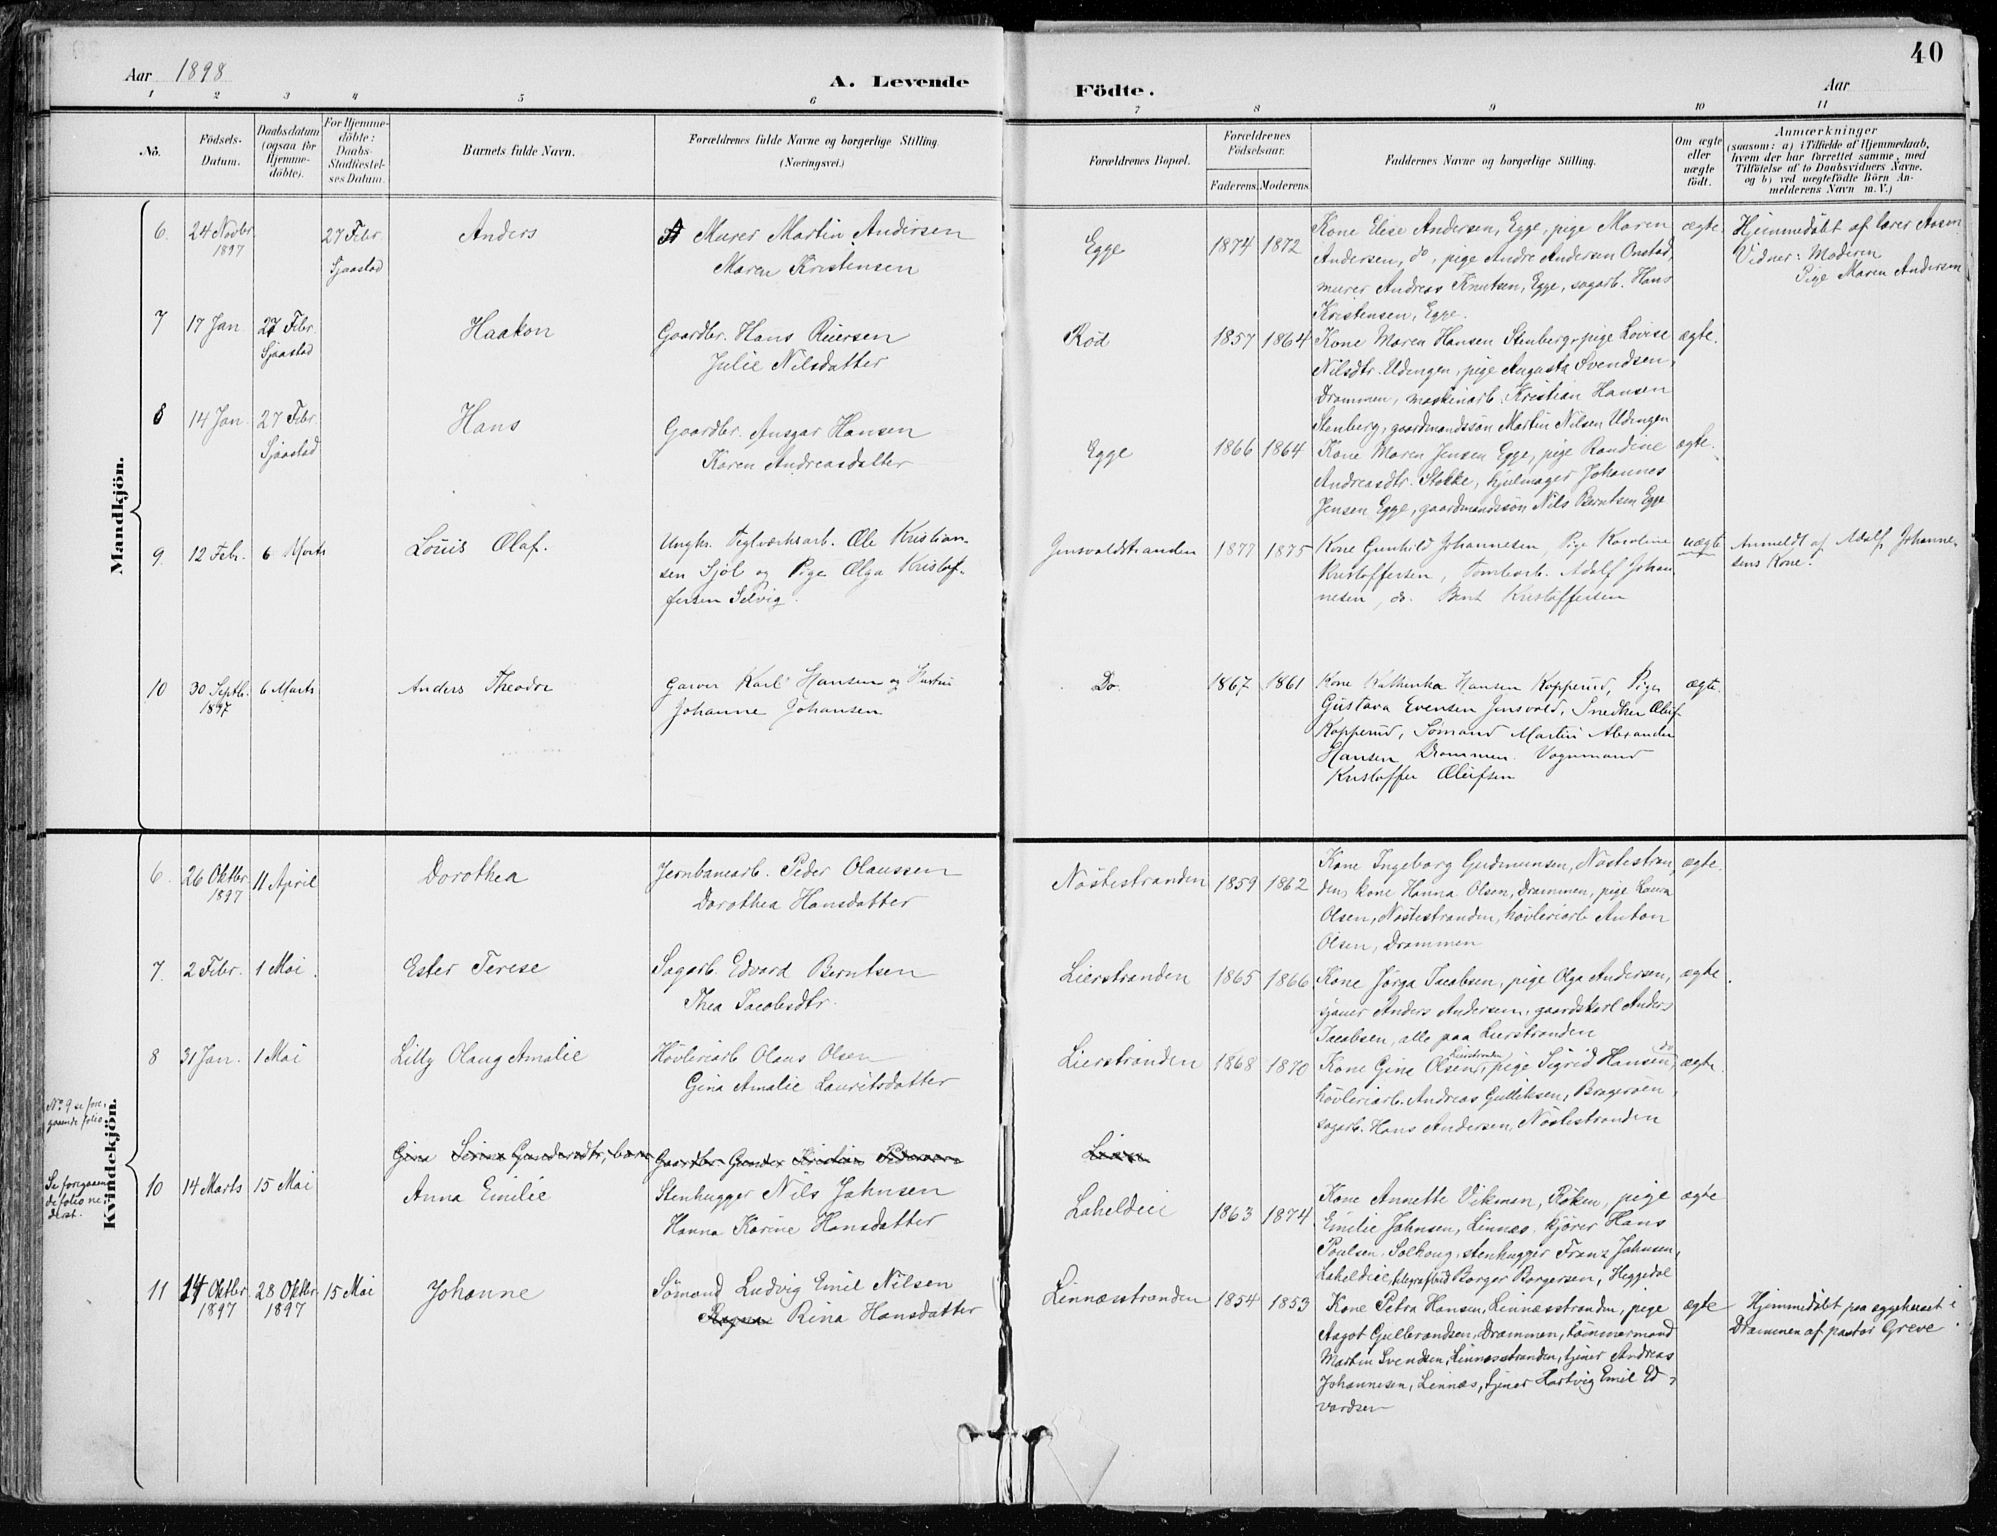 40
Aar 1898
A. Levende
Födte.
Aar
1 2 3 4 5 6 7 8 9 10 11
No.
Födsels-Datum.
Daabsdatum (ogsaa for Hjemmedöbte).
For Hjemmedöbte: Daabs-Stadfæstelses Datum.
Barnets fulde Navn.
Forældrenes fulde Navne og borgerlige Stilling.
(Næringsvei.)
Forældrenes Bopæl.
Forældrenes Födselsaar.
Faderens. Moderens.
Faddernes Navne og borgerlige Stilling.
Om ægte eller uægte födt.
Anmærkninger
(saasom: a) i Tilfælde af Hjemmedaab,
hvem der har forrettet samme, med
Tilföielse af to Daabsvidners Navne,
og b) ved uægtefödte Börn An-
melderens Navn m. V.)
Mandkjön.
6. 24 Novbr 1897 27 Febr. Sjaastad Anders
Murer Martin Andersen
Maren Kristensen
Egge 1874 1872
Kone Elise Andersen, Egge, pige Maren
Andersen, do, pige Andre Andersen Onstad,
murer Andreas Knutsen, Egge, sagarb. Hans
Kristensen, Egge.
ægte
Hjemmedöbt af lærer
Vidner: Moderen
Pige Maren Andersen
7 17 Jan 27 Febr. Sjaastad Haakon
Gaardbr. Hans Reiersen
Julie Nilsdatter
Röd 1857 1864
Kone Maren Hansen Stenberg, pige Lovise
Nilsdtr. Udengen, pige Augusta Svendsen,
Drammen, maskinarb. Kristian Hansen
Stenberg, gaardmandssön Martin Nilsen Udengen
ægte.
8 14 Jan. 27 Febr. Sjaastad Hans
Gaardbr. Ansgar Hansen
Karen Andreasdatter
Egge 1866 1864
Kone Maren Jensen Egge, pige Randine
Andreasdtr. Stokke, hjulmager Johannes
Jensen Egge, gaardmandssön Nils Berntsen Egge
ægte.
9. 12 Febr. 6 Marts Louis Olaf.
Ungk. Teglværksarb. Ole Kristian-
sen Sjöl og Pige Olga Kristof-
fersen Selvig.
Gunsvoldstranden 1877 1875
Kone Gunhild Johannesen, Pige Karoline
Kristoffersen, Tomtearb. Adolf Johan-
nesen, do. Bent Kristoffersen
uægte
Anmeldt af Adolf Johanne-
sens Kone.
10 30 Septb. 1897 6 Marts Anders Theodor
Garver Karl Hansen og Hustru
Johanne Johansen
Do. 1867 1861
Kone Kathinka Hansen Kopperud, Pige
Gustava Evensen Gunsvold, Snedker Oluf
Kopperud, Sömand Martin Alexander
Hansen Drammen. Vognmand
Kristoffer Olufsen
ægte
Kvindekjön.
6. 26 Oktbr. 1897 11 April Dorothea
Jernbanearb. Peder Olaussen
Dorothea Hansdatter
Nöstestranden 1859 1862
Kone Ingeborg Gudmunsen, Nöstestran
den, kone Hanna Olsen, Drammen, pige Laura
Olsen, Nöstestranden, hövleriarb Anton
Olsen, Drammen
ægte.
7. 2 Febr. 1 Mai. Ester Terese
Sagarb. Edvard Berntsen
Thea Jacobsdtr.
Lierstranden 1865 1866
Kone Jörga Jacobsen, pige Olga Andersen,
sjauer Anders Andersen, gaardskarl Anders
Jacobsen, alle paa Lierstranden
ægte
8 31 Jan. 1 Mai Lilly Olaug Amalie
Hövleriarb Olaus Olsen
Gina Amalie Lauritsdatter
Lierstranden 1868 1870
Kone Gina Olsen, Lierstranden, pige Sigrid Hansen, do
hövleriarb. Andreas Gulliksen, Brageröen,
sagarb. Hans Andersen, Nöstestranden
ægte.
No. 9 se fore-
gaaende folio
Gina Serine Gundersdtr, barn Gaardbr Gunder Kristian Lien
Se foregaaen
de folio ne-
derst.
10 14 Marts 15 Mai Anna Emilie
Stenhugger Nils Jahnsen
Hanna Karine Hansdatter
Laheldeie 1863 1874
Kone Annette Vikman, Röken, pige
Emilie Jahnsen, Linnæs, kjörer Hans
Poulsen, Solhoug, stenhugger Franz Jahnsen,
Laheldeie, telegrafbud Borger Borgersen, Heggedal
ægte
11 14 Oktbr. 1897 28 Oktbr. 1897 15 Mai Johanne
Sömand Ludvig Emil Nilsen
Ragna Rina Hansdatter
Linnæsstranden 1854 1853
Kone Petra Hansen, Linnæsstranden, pige
Aagot Gulbrandsen, Drammen, tömmermand
Martin Svendsen, Linnæsstranden, tjener Andreas
Johannesen, Linnæs, tjener Hartvig Emil Ed-
vardsen
ægte
Hjemmedöbt paa sygehuset i
Drammen af pastor Greve